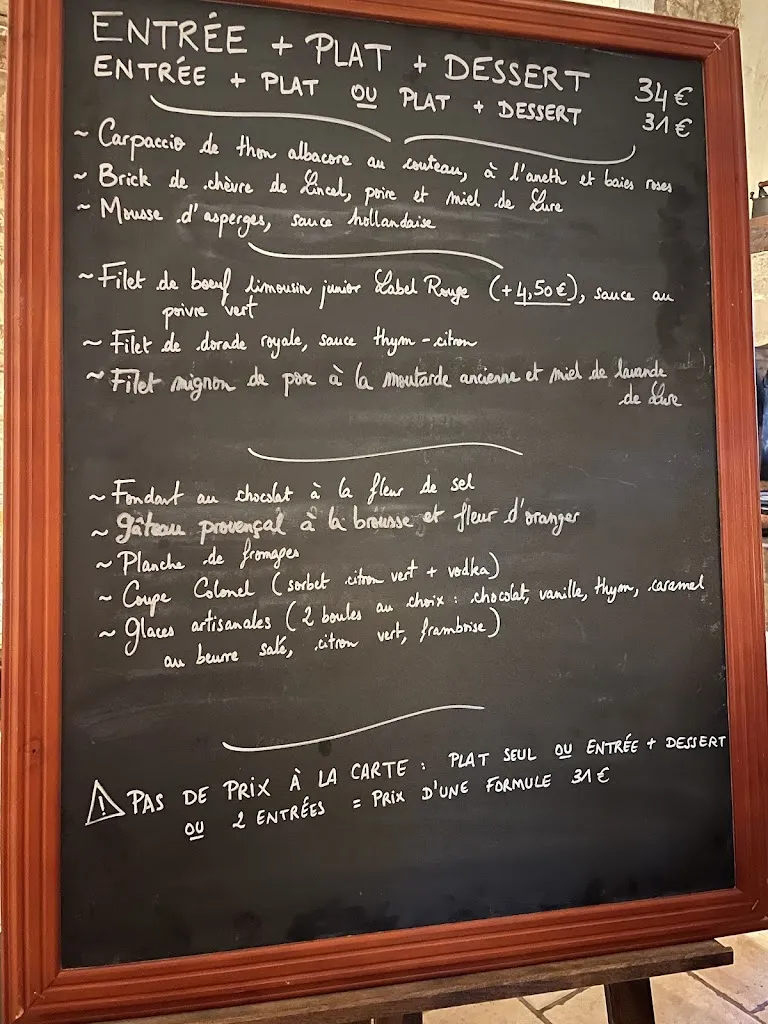 ENTRÉE + PLAT + DESSERT 34€
ENTRÉE + PLAT OU PLAT + DESSERT 31€
~ Carpaccio de thon albacore au couteau, à l'aneth et baies roses
~ Brick de chèvre de Lincel, poire et miel de Lure
~ Mousse d'asperges, sauce hollandaise
~ Filet de boeuf limousin junior Label Rouge (+ 4,50€), sauce au
poivre vert
~ Filet de dorade royale, sauce thym-citron
~ Filet mignon de porc à la moutarde ancienne et miel de lavande
de Lure
~ Fondant au chocolat à la fleur de sel
~ Gâteau provençal à la brousse et fleur d'oranger
~ Planche de fromages
~ Coupe Colonel (sorbet citron vert + vodka)
~ Glaces artisanales (2 boules au choix : chocolat, vanille, thym, caramel
au beurre salé, citron vert, framboise)
⚠ PAS DE PRIX À LA CARTE : PLAT SEUL OU ENTRÉE + DESSERT
OU 2 ENTRÉES = PRIX D'UNE FORMULE 31€